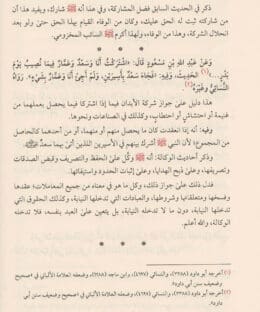 ذكر في الحديث السابق فضل المشاركة، وفي هذا أنه ﷺ شارك، ويفيد هذا أن
من شاركته ثبت له الحق عليك، وكان من الوفاء القيام بهذا الحق حتى ولو بعد
انحلال الشركة، وهذا من الوفاء، ولهذا أكرم ﷺ السائب المخزومي.
* * *
وَعَنْ عَبْدِ اللهِ بْنِ مَسْعُودٍ قَالَ: «اشْتَرَكْتُ أَنَا وَسَعْدٌ وَعَمَّارٌ فِيمَا نُصِيبُ يَوْمَ
بَدْرٍ...»(١) الْحَدِيثَ، وفيه: «فَجَاءَ سَعْدٌ بِأَسِيرَيْنِ، وَلَمْ أَجِئْ أَنَا وَعَمَّارٌ بِشَيْءٍ». رَوَاهُ
النَّسَائِيُّ وَغَيْرُهُ(٢).
هذا دليل على جواز شركة الأبدان فيما إذا اشتركا فيما يحصل بعملهما من
غنيمة أو احتشاش أو احتطابٍ، وكذلك في الصناعات ونحوها.
وفيه: أنه إذا انعقدت كان ما يحصل منهم أو منهما، أو من أحدهما كالحاصل
من المجموع؛ لأن النبي ﷺ أشرك بينهم في الأسيرين اللذين أتى بهما سعدٌ
وذكر أحاديث الوكالة: أنه ﷺ وكَّل على الحفظ والتصرف وقبض الصدقات
وتصريفها، وعلى ذبح الهدايا، وعلى إثبات الحدود واستيفائها.
فدل ذلك على جواز ذلك، وكل ما هو في معناه من جميع المعاملات؛ عقدها
وفسخها ومتعلقاتها وشروطها، والعبادات التي تدخلها النيابة، وكذلك الحقوق التي
تدخلها النيابة، وأما ما لا تدخله النيابة، بل يتعين على العبد بنفسه، فلا تدخله
الوكالة، والله أعلم.
* * *
(١) أخرجه أبو داود (٣٣٨٨)، والنسائي (٤٦٩٧)، وابن ماجه (٢٢٨٨)، وضعفه العلامة الألباني في «صحيح
وضعيف سنن أبي داود».
(٢) أخرجه أبو داود (٣٣٨٨)، والنسائي (٤٦٩٧)، وضعفه العلامة الألباني في «صحيح وضعيف سنن أبي
داود».